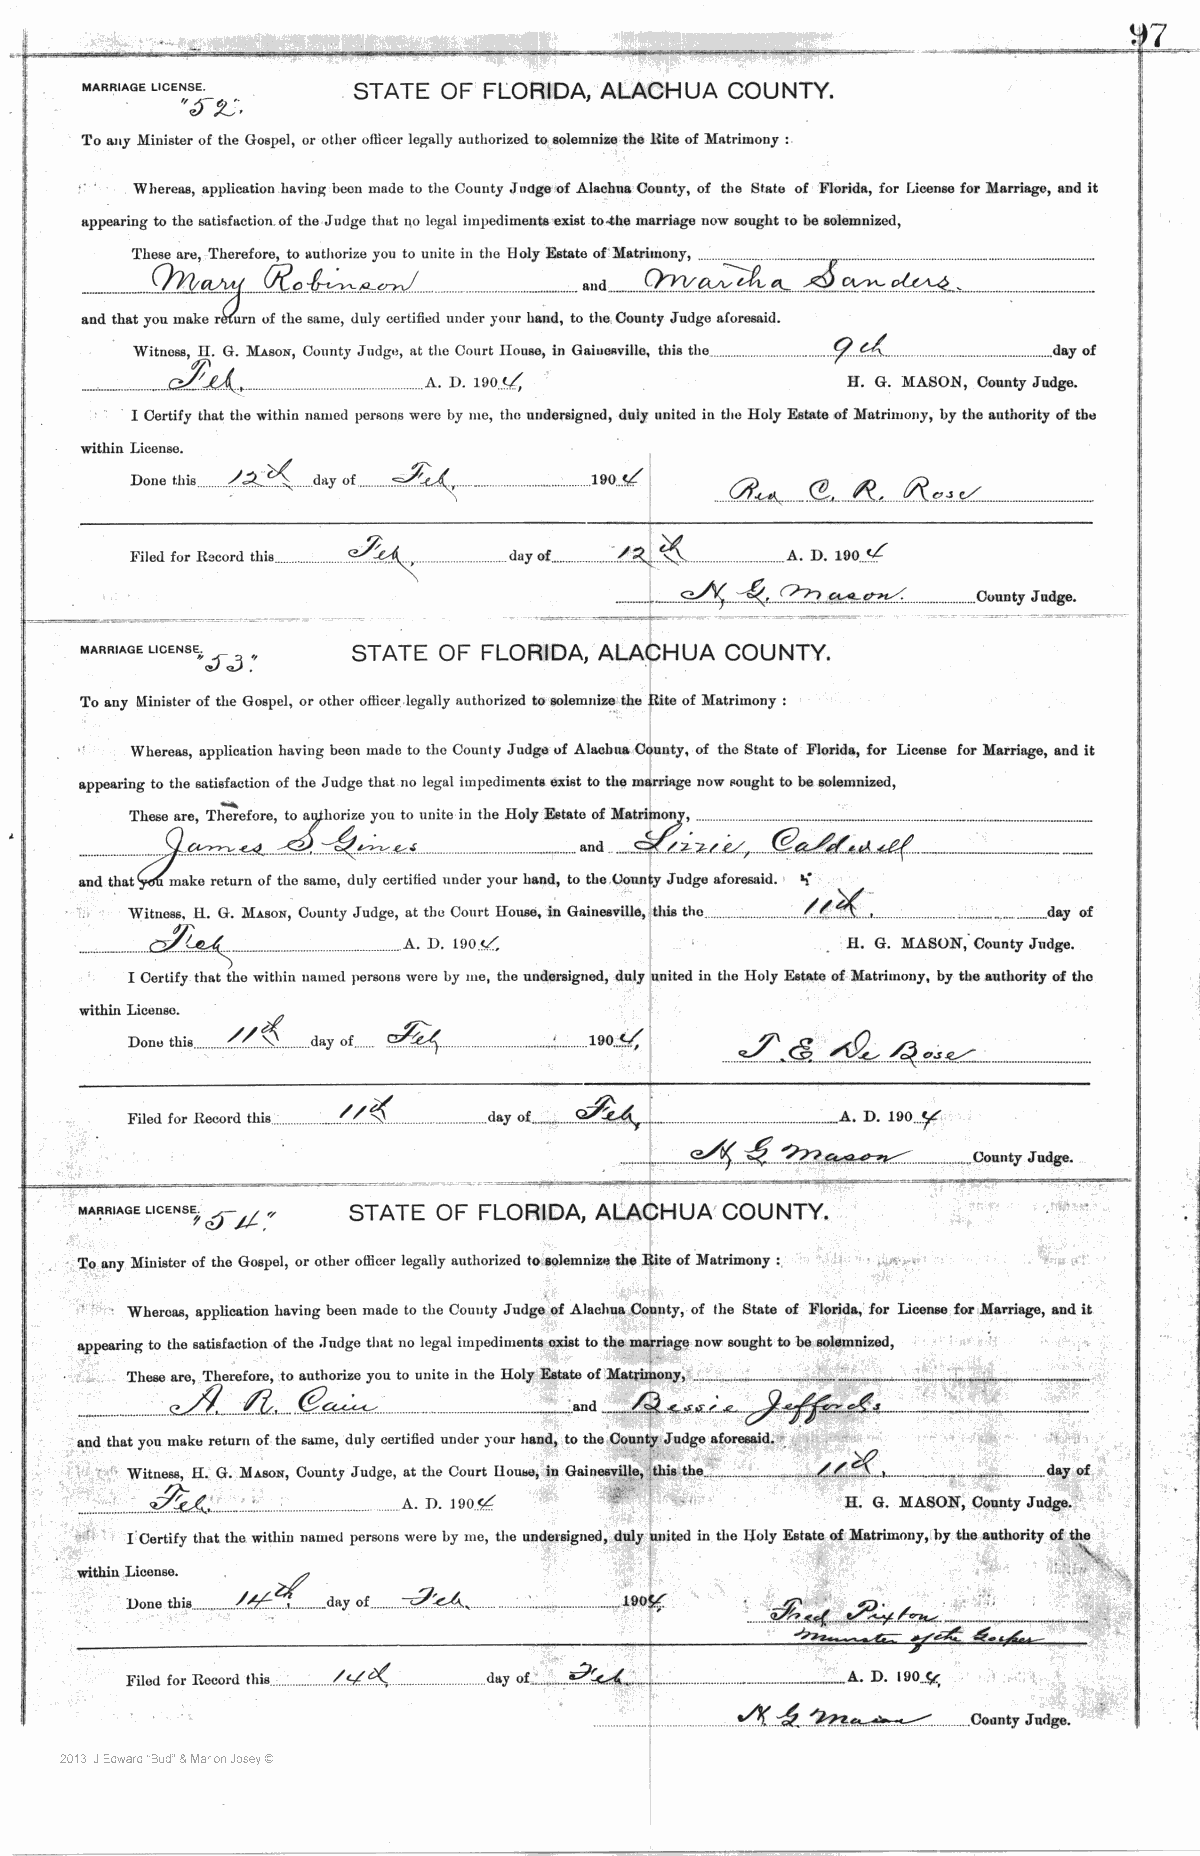 97
MARRIAGE LICENSE. STATE OF FLORIDA, ALACHUA COUNTY.
"52".
To any Minister of the Gospel, or other officer legally authorized to solemnize the Rite of Matrimony :
Whereas, application having been made to the County Judge of Alachua County, of the State of Florida, for License for Marriage, and it
appearing to the satisfaction of the Judge that no legal impediments exist to the marriage now sought to be solemnized,
These are, Therefore, to authorize you to unite in the Holy Estate of Matrimony,
Mary Robinson and Martha Sanders.
and that you make return of the same, duly certified under your hand, to the County Judge aforesaid.
Witness, H. G. MASON, County Judge, at the Court House, in Gainesville, this the 9th day of
Feb. A. D. 1904, H. G. MASON, County Judge.
I Certify that the within named persons were by me, the undersigned, duly united in the Holy Estate of Matrimony, by the authority of the
within License.
Done this 12th day of Feb. 1904
Rev C. R. Rose
Filed for Record this Feb. day of 12th A. D. 1904
H. G. Mason. County Judge.
MARRIAGE LICENSE. STATE OF FLORIDA, ALACHUA COUNTY.
"53".
To any Minister of the Gospel, or other officer legally authorized to solemnize the Rite of Matrimony :
Whereas, application having been made to the County Judge of Alachua County, of the State of Florida, for License for Marriage, and it
appearing to the satisfaction of the Judge that no legal impediments exist to the marriage now sought to be solemnized,
These are, Therefore, to authorize you to unite in the Holy Estate of Matrimony,
James S. Gines and Lizzie, Caldwell
and that you make return of the same, duly certified under your hand, to the County Judge aforesaid.
Witness, H. G. MASON, County Judge, at the Court House, in Gainesville, this the 11th. day of
Feb A. D. 1904. H. G. MASON, County Judge.
I Certify that the within named persons were by me, the undersigned, duly united in the Holy Estate of Matrimony, by the authority of the
within License.
Done this 11th day of Feb 1904,
T. E. De Bose
Filed for Record this 11th day of Feb, A. D. 1904
H G Mason County Judge.
MARRIAGE LICENSE. STATE OF FLORIDA, ALACHUA COUNTY.
"54".
To any Minister of the Gospel, or other officer legally authorized to solemnize the Rite of Matrimony :
Whereas, application having been made to the County Judge of Alachua County, of the State of Florida, for License for Marriage, and it
appearing to the satisfaction of the Judge that no legal impediments exist to the marriage now sought to be solemnized,
These are, Therefore, to authorize you to unite in the Holy Estate of Matrimony,
A. R. Cain and Bessie Jeffords
and that you make return of the same, duly certified under your hand, to the County Judge aforesaid.
Witness, H. G. MASON, County Judge, at the Court House, in Gainesville, this the 11th, day of
Feb. A. D. 1904 H. G. MASON, County Judge.
I Certify that the within named persons were by me, the undersigned, duly united in the Holy Estate of Matrimony, by the authority of the
within License.
Done this 14th day of Feb. 1904,
Fred Pixton
Minister of the Gospel
Filed for Record this 14th day of Feb. A. D. 1904,
H G Mason County Judge.
2013 J Edward "Bud" & Marion Josey ©